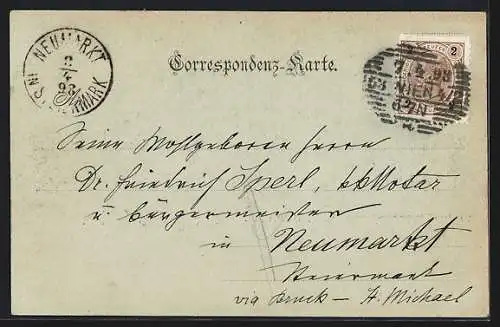 NEUMARKT
3
4
98
IN STEIERMARK
Correspondenz-Karte.
2
7. 4. 98
53 WIEN 4/1
Seine Wohlgeboren Herrn
Dr. Friedrich Sperl, kk Notar
u. Bürgermeister
in Neumarkt
Steiermark
via Bruck – St. Michael